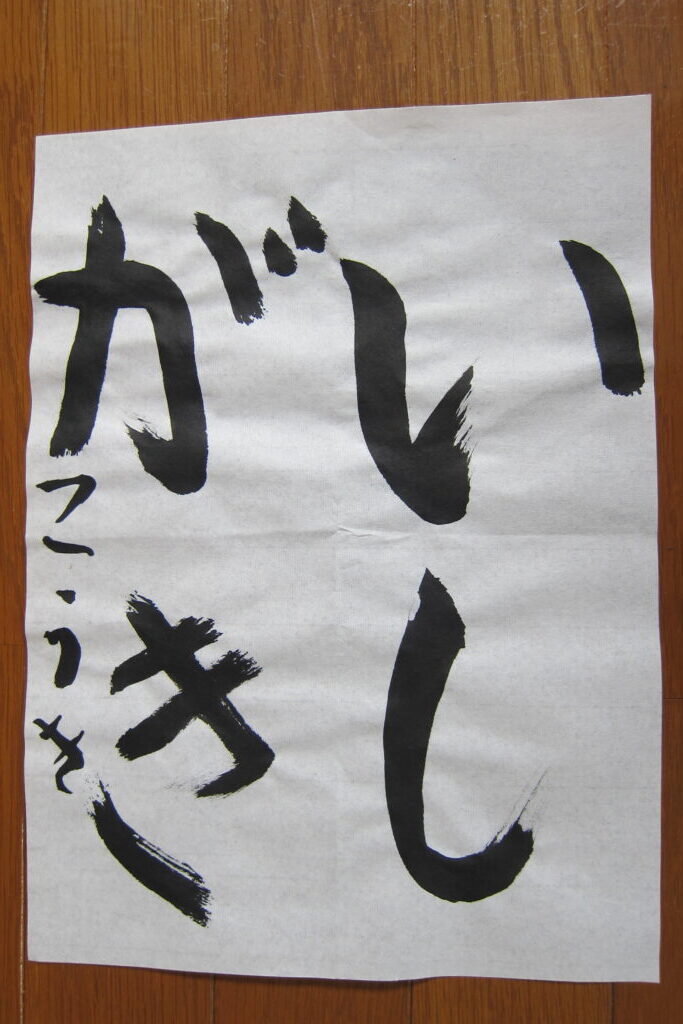 いし
がき
こうき